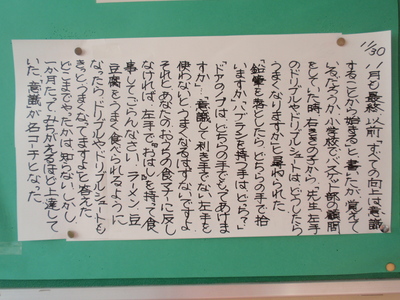 11/30
11月も最終 以前「すべての向上は、意識
することから始まる」と書いたが、覚えて
いるだろうか 小学校のバスケット部の顧問
をしていた時、右ききの子から、「先生、左手
のドリブルやドリブルシュートは、どうしたら
うまくなりますか」と尋ねられた
「鉛筆を落としたら、どちらの手で拾
いますか ハブラシを持つ手は、どちら?
ドアのノブは、どちらの手でもってあけま
すか…」「意識して利き手でない左手を
使わないとうまくなるはずないですよ
それと、あなたのおうちの食マナーに反し
なければ、左手で『おはし』を持って食
事してごらんなさい ラーメン、豆
豆腐をうまく食べられるように
なったら、ドリブルやドリブルシュートも
きっとうまくなってますよ」と答えた
どこまでやったかは知らない しかし
一か月たって、みちがえるほど上達して
いた 意識が名コーチとなった